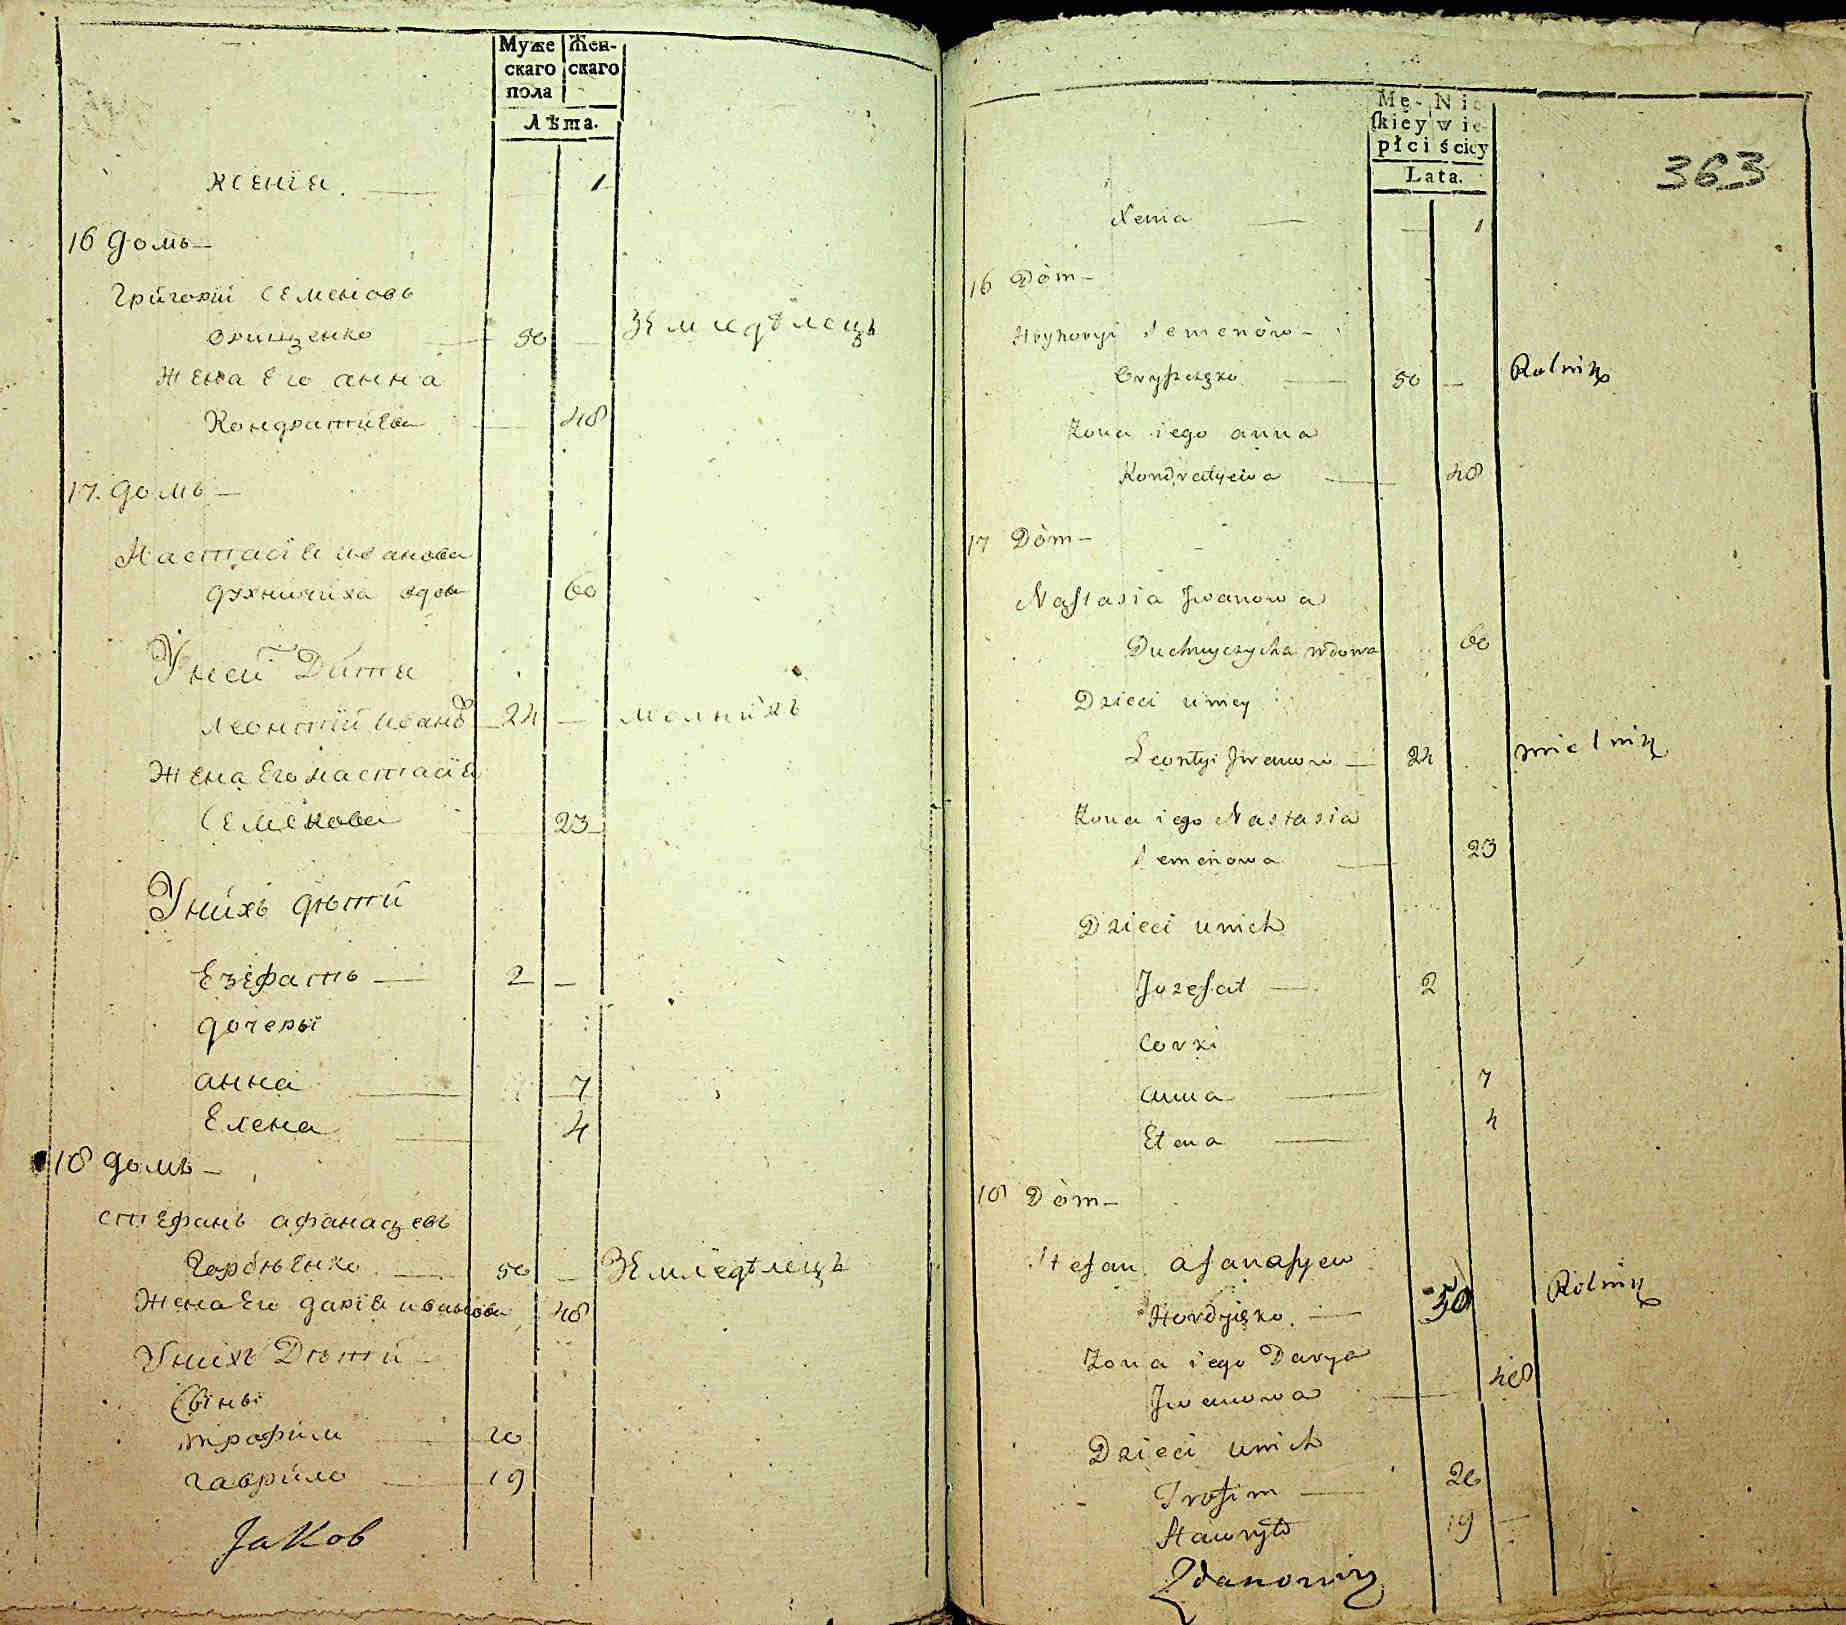 Муже
скаго
пола
Жен-
скаго
Лѣта.
Ксенїя — 1
16 Домъ —
Григорїй Семеновъ
Орищенко — 50 — Земледѣлецъ
Жена Его анна
Кондратиева — 48
17. Домъ —
Настасїя иванова
духничиха вдова 60
У ней Дити
Леонтїй иванов 24 — мелникъ
Жена Его настасїя
Семенова 23
У нихъ дѣти
Езефатъ — 2 —
дочеры
анна — 7
Елена — 4
18 домъ —
стефанъ афанасцевъ
Гордѣенко — 50 — Земледѣлецъ
Жена Его дарїя иванова 48
У нихъ Дѣти
Сыны
трофим — 20
гаврило — 19
Jakob
Mę-
skiey
płci
Nie
wie-
ściey
Lata.
363
Xenia — 1
16 Dòm —
Hryhoryi Semenòw —
Oryszczęko — 50 — Rolnik
Żona iego anna
Kondratyeiwa — 48
17 Dòm —
Nastasia Jwanowa
Duchnyczycha wdowa 60
Dzieci u niey
Leontyi Jwanow — 24 mielnik
Żona iego Nastasia
Semenowa — 23
Dzieci u nich
Jozefat — 2
Corki
anna — 7
Elena — 4
18 Dòm —
Stefan afanasyew
Hordyięko — 50 Rolnik
Żona iego Darya
Jwanowa — 48
Dzieci u nich
Trofim — 20
Hawryło 19 —
Zdanowicz